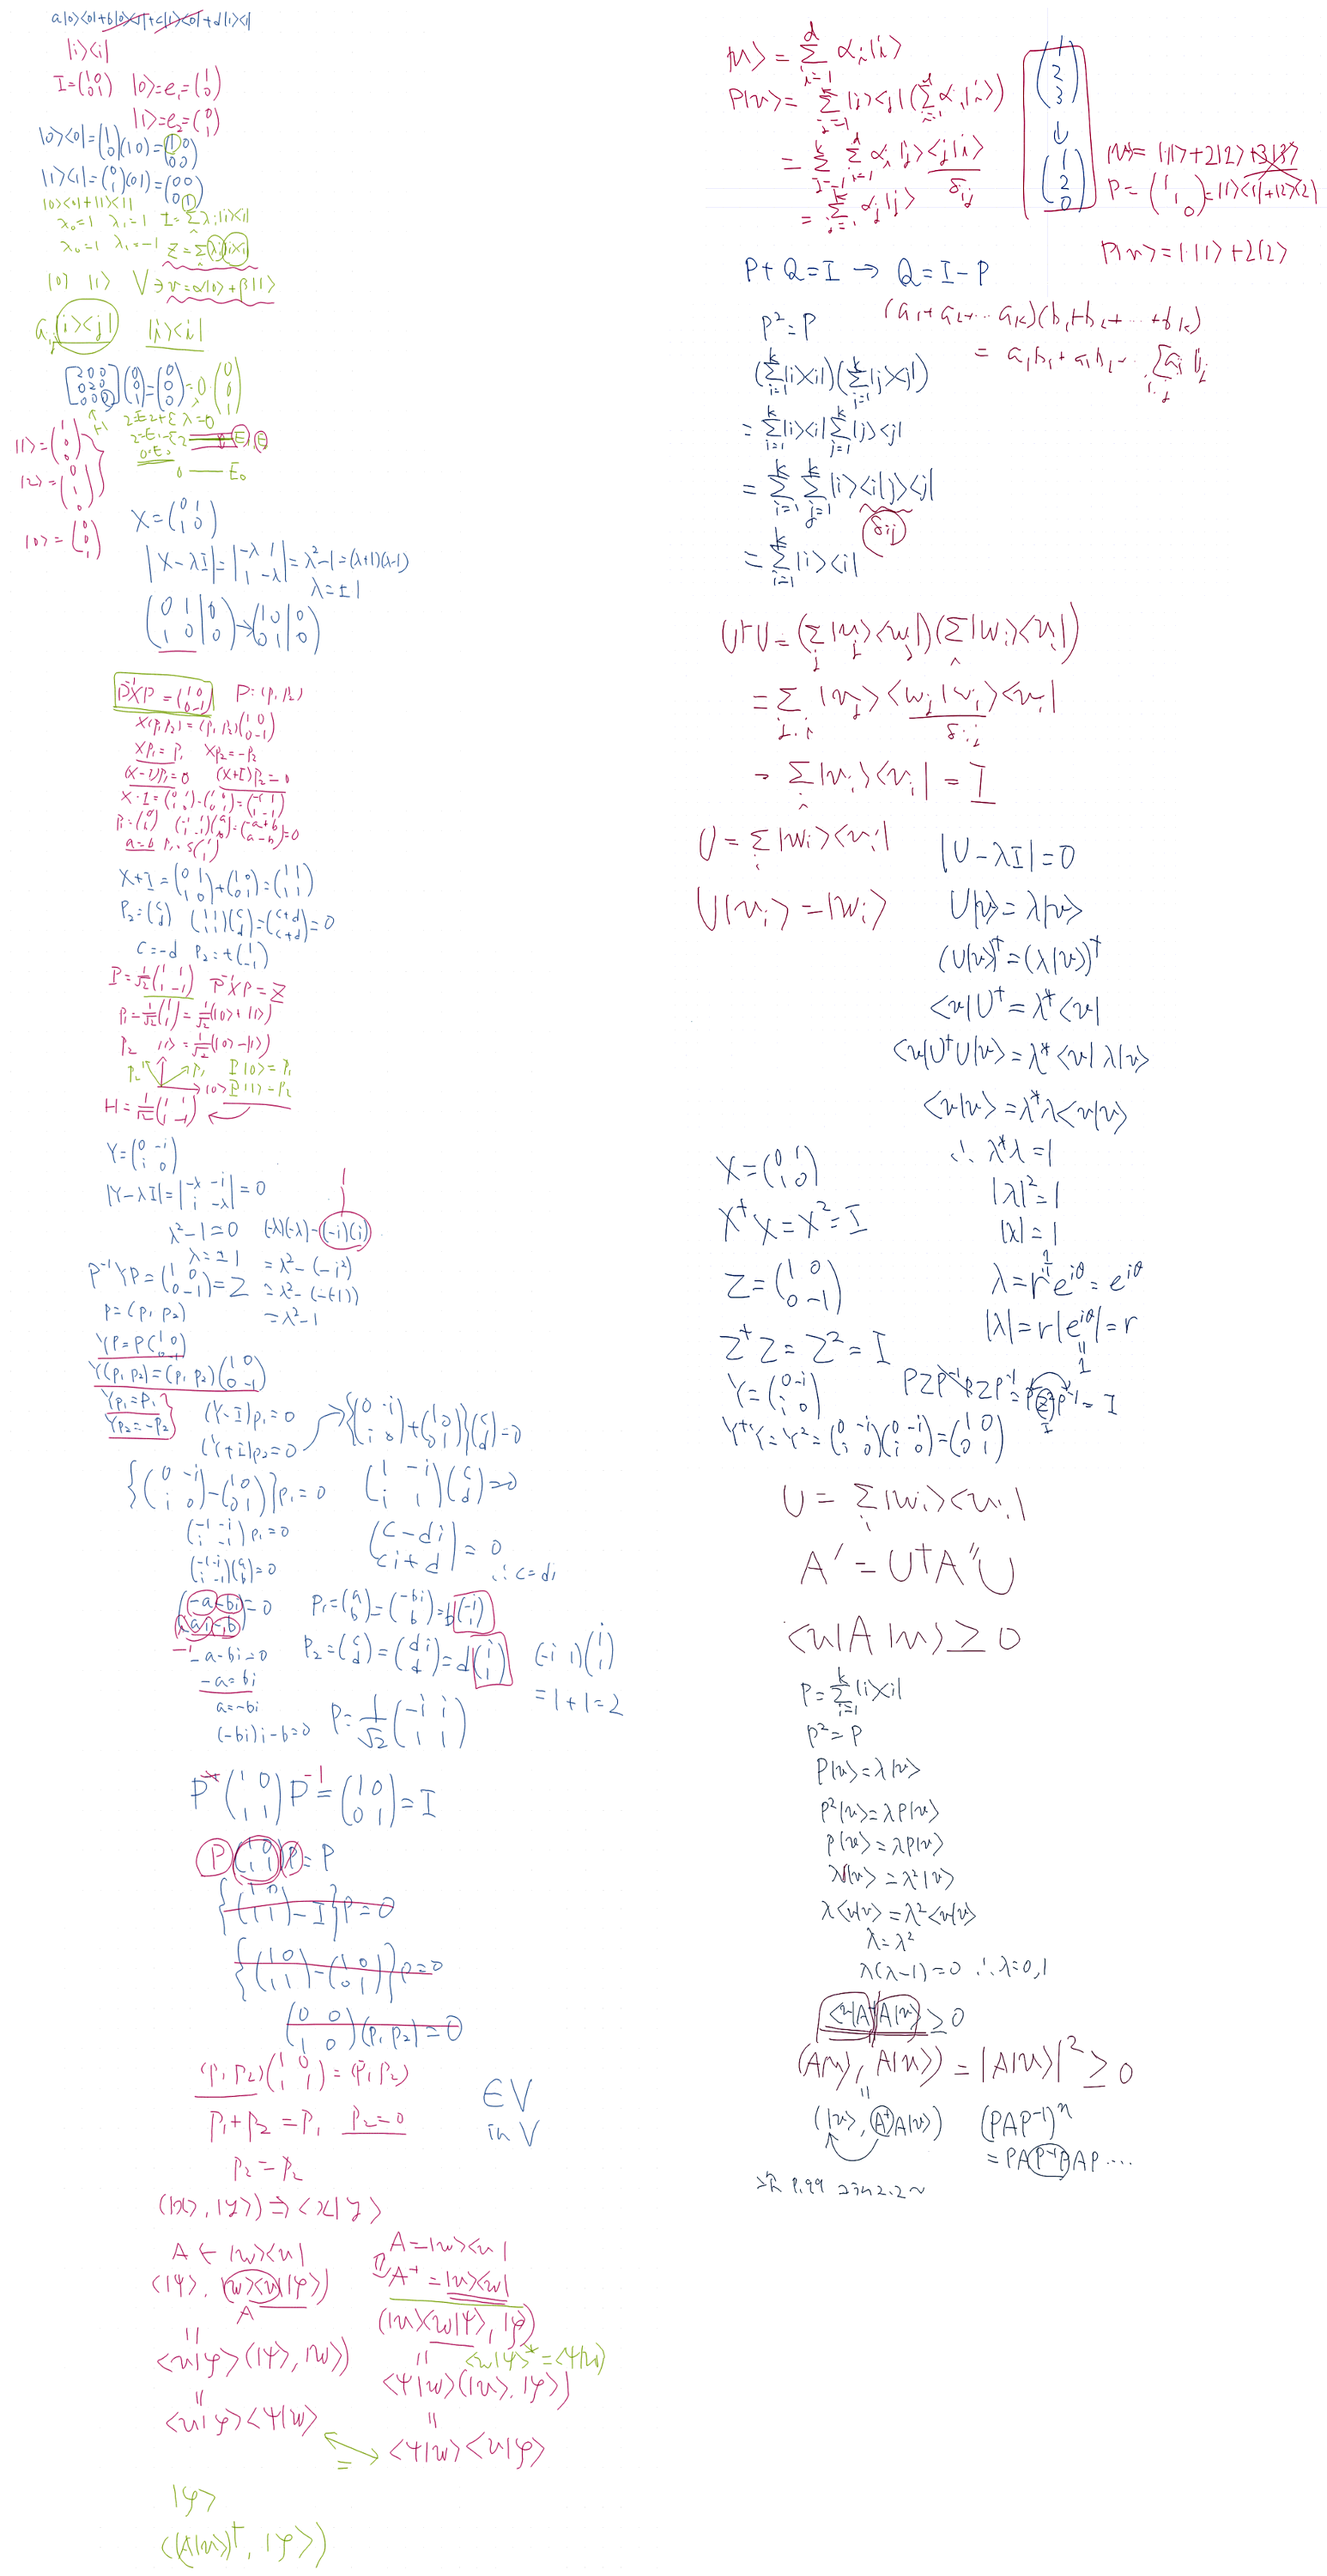 a|0><0|+b|0><1|+c|1><0|+d|1><1|
|i><i|
I=(1 0 0 1) |0>=e₁=(1 0)
|1>=e₂=(0 1)
|0><0|=(1 0)(1 0)=(1 0 0 0)
|1><1|=(0 1)(0 1)=(0 0 0 1)
|0><0|+|1><1|
λ₀=1 λ₁=1 I=Σλᵢ|i><i|
λ₀=1 λ₁=-1 Z=Σλᵢ|i><i|
|0> |1> V∋v=α|0>+β|1>
aᵢⱼ|i><j| |i><i|
[2 0 0 0 2 0 0 0 0](0 0 1)=(0 0 0)=0(0 0 1)
|1>=(1 0 0)
|2>=(0 1 0)
0 — E₀
|0>=(0 0 1)
X=(0 1 1 0)
|X-λI|=|-λ 1 1 -λ|=λ²-1=(λ+1)(λ-1)
λ=±1
(0 1|0 1 0|0)→(1 0|0 0 1|0)
P⁻¹XP=(1 0 0 -1) P=(p₁ p₂)
X(p₁ p₂)=(p₁ p₂)(1 0 0 -1)
Xp₁=p₁ Xp₂=-p₂
(X-I)p₁=0 (X+I)p₂=0
X-I=(0 1 1 0)-(1 0 0 1)=(-1 1 1 -1)
p₁=(a b) (-1 1 1 -1)(a b)=(-a+b a-b)=0
a=b p₁=s(1 1)
X+I=(0 1 1 0)+(1 0 0 1)=(1 1 1 1)
p₂=(c d) (1 1 1 1)(c d)=(c+d c+d)=0
c=-d p₂=t(1 -1)
P=1/√2(1 1 1 -1) P⁻¹XP=Z
p₁=1/√2(1 1)=1/√2(|0>+|1>)
p₂ |1>=1/√2(|0>-|1>)
p₂ p₁ P|0>=p₁
|0> P|1>=p₂
H=1/√2(1 1 1 -1)
Y=(0 -i i 0)
|Y-λI|=|-λ -i i -λ|=0
1
λ²-1=0 (-λ)(-λ)-(-i)(i)
λ=±1 =λ²-(-i²)
P⁻¹YP=(1 0 0 -1)=Z =λ²-(-(-1))
P=(p₁ p₂) =λ²-1
YP=P(1 0 0 -1)
Y(p₁ p₂)=(p₁ p₂)(1 0 0 -1)
Yp₁=p₁
Yp₂=-p₂
(Y-I)p₁=0
(Y+I)p₂=0
{(0 -i i 0)+(1 0 0 1)}(c d)=0
{(0 -i i 0)-(1 0 0 1)}p₁=0 (1 -i i 1)(c d)=0
(-1 -i i -1)p₁=0
(c-di ci+d)=0
∴c=di
(-1 -i i -1)(a b)=0
(-a-bi ai-b)=0 p₁=(a b)=(-bi b)=b(-i 1)
-a-bi=0 p₂=(c d)=(di d)=d(i 1) (-i 1)(i 1)
-a=bi =1+1=2
a=-bi
(-bi)i-b=0 P=1/√2(-i i 1 1)
P(1 0 1 1)P⁻¹=(1 0 0 1)=I
P(1 0 1 1)P=P
{(1 0 1 1)-I}P=0
{(1 0 1 1)-(1 0 0 1)}P=0
(0 0 1 0)(p₁ p₂)=0
(p₁ p₂)(1 0 1 1)=(p₁ p₂)
p₁+p₂=p₁ p₂=0
p₂=p₂
∈V
in V
(|x>,|y>)⇒<x|y>
A←|w><v|
(|ψ>,|w><v|φ>)
A
=
<v|φ>(|ψ>,|w>)
=
<v|φ><ψ|w>
A=|w><v|
A†=|v><w|
(|v><w|ψ>,|φ>)
= <w|ψ>*=<ψ|w>
<ψ|w>(|v>,|φ>)
=
<ψ|w><v|φ>
=
|φ>
((A|v>)†,|φ>)
|v>=Σᵢ₌₁ᵈ αᵢ|i>
P|v>=Σⱼ₌₁ᵏ|j><j|(Σᵢ₌₁ᵈαᵢ|i>)
=Σⱼ₌₁ᵏΣᵢ₌₁ᵈαᵢ|j><j|i>
δᵢⱼ
=Σⱼ₌₁ᵏαⱼ|j>
(1 2 3)
↓
(1 2 0)
|v>=1|1>+2|2>+3|3>
P=(1 1 0)=|1><1|+|2><2|
P|v>=1·|1>+2|2>
P+Q=I → Q=I-P
(a₁+a₂+…aₖ)(b₁+b₂+…+bₖ)
=a₁b₁+a₁b₂… Σᵢ,ⱼ aᵢbⱼ
P²=P
(Σᵢ₌₁ᵏ|i><i|)(Σⱼ₌₁ᵏ|j><j|)
=Σᵢ₌₁ᵏ|i><i|Σⱼ₌₁ᵏ|j><j|
=Σᵢ₌₁ᵏΣⱼ₌₁ᵏ|i><i|j><j|
δᵢⱼ
=Σᵢ₌₁ᵏ|i><i|
U†U=(Σⱼ|vⱼ><wⱼ|)(Σᵢ|wᵢ><vᵢ|)
=Σⱼ,ᵢ|vⱼ><wⱼ|wᵢ><vᵢ|
δᵢⱼ
=Σᵢ|vᵢ><vᵢ|=I
U=Σᵢ|wᵢ><vᵢ|
U|vᵢ>=|wᵢ>
|U-λI|=0
U|v>=λ|v>
(U|v>)†=(λ|v>)†
<v|U†=λ*<v|
<v|U†U|v>=λ*<v|λ|v>
<v|v>=λ*λ<v|v>
∴λ*λ=1
|λ|²=1
|λ|=1
λ=re^{iθ}=e^{iθ}
|λ|=r|e^{iθ}|=r
1
X=(0 1 1 0)
X†X=X²=I
Z=(1 0 0 -1)
Z†Z=Z²=I
Y=(0 -i i 0) PZP⁻¹PZP⁻¹=PZ²P⁻¹=I
I
Y†Y=Y²=(0 -i i 0)(0 -i i 0)=(1 0 0 1)
U=Σᵢ|wᵢ><vᵢ|
A′=U†A″U
<v|A|v>≥0
P=Σᵢ₌₁ᵏ|i><i|
P²=P
P|v>=λ|v>
P²|v>=λP|v>
P|v>=λP|v>
λ|v>=λ²|v>
λ<v|v>=λ²<v|v>
λ=λ²
λ(λ-1)=0 ∴λ=0,1
<v|A†A|v>≥0
(A|v>,A|v>)=|A|v>|²≥0
=
(|v>,A†A|v>)
(PAP⁻¹)ⁿ
=PAP⁻¹PAP….
次 P.99 2.2~